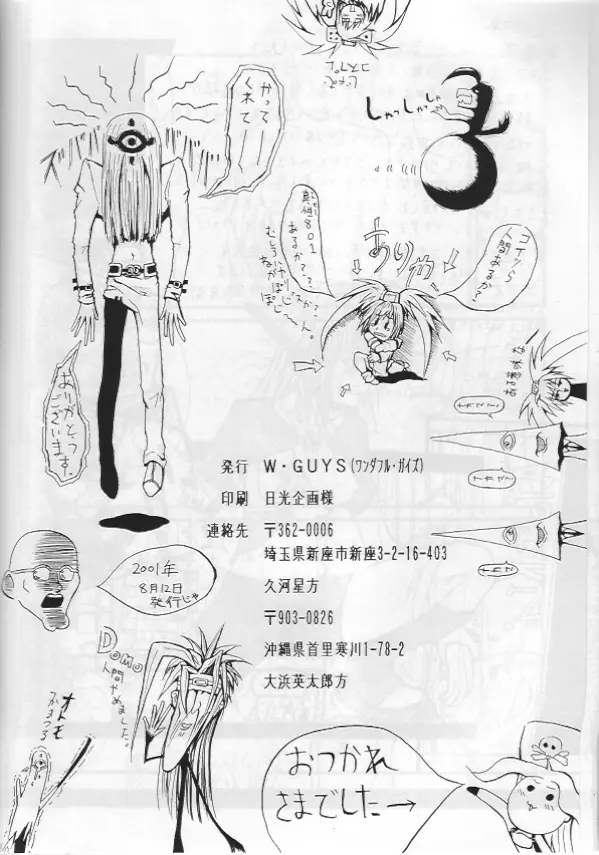 じゃんで
コスプレ
しゃっしゃっしゃ
かって
くれて
ありがとう
ございます。
コイツら
人間あるか？
ありゃ
真性801
あるか？？
むしろ
発行 W・GUYS(ワンダフル・ガイズ)
印刷 日光企画様
連絡先 〒362-0006
埼玉県新座市新座3-2-16-403
久河星方
〒903-0826
沖縄県首里寒川1-78-2
大浜英太郎方
2001年
8月12日
発行じゃ
Domo
人間やめました。
オトモ
つかまつる
おつかれ
さまでした→